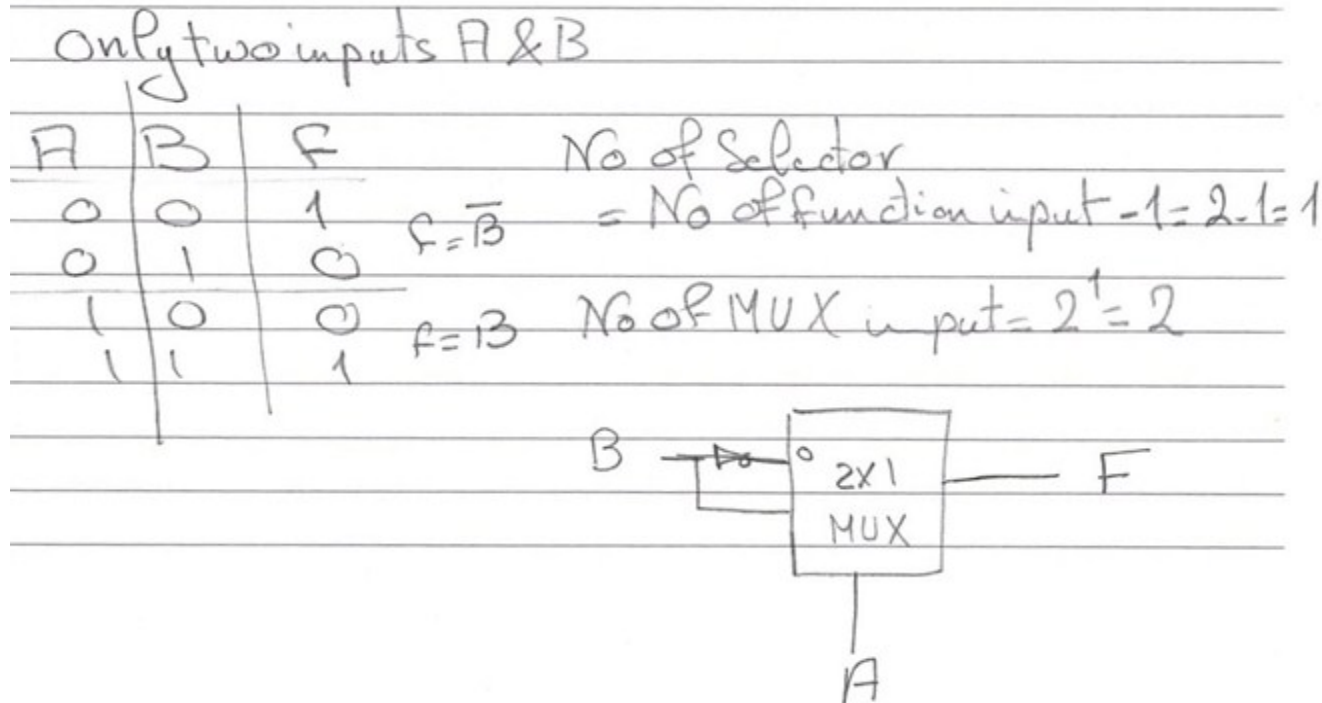 Only two inputs A & B
A B F
0 0 1
0 1 0
1 0 0
1 1 1
f = B̅
f = B
No of Selector
= No of function input - 1 = 2 - 1 = 1
No of MUX input = 2¹ = 2
B
0
2X1
MUX
F
A